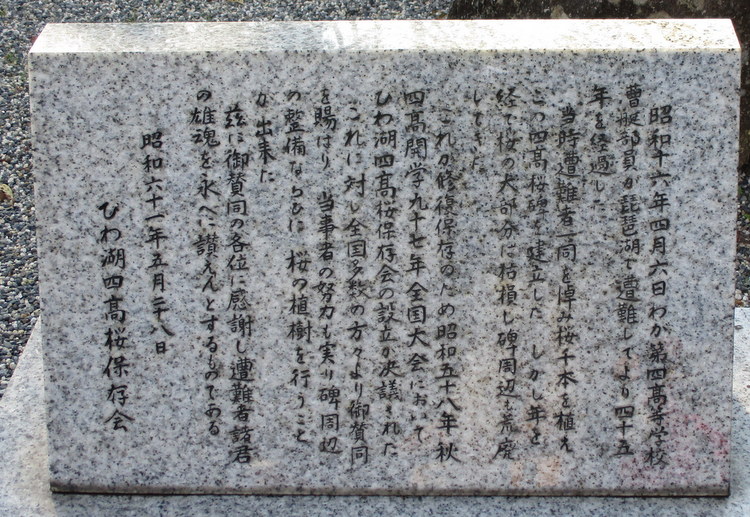 昭和十六年四月六日わが第四高等学校
曹艇部員が琵琶湖で遭難してより四十五
年を経過した
当時遭難者一同を悼み桜千本を植え
この四高桜碑を建立した しかし年を
経て桜の大部分は枯損し碑周辺も荒廃
してきた
これが修復保存のため昭和五十八年秋
四高開学九十七年全国大会において
びわ湖四高桜保存会の設立が決議された
これに対し全国多数の方々より御賛同
を賜はり 当事者の努力も実り碑周辺
の整備ならびに 桜の植樹を行うこと
が出来た
茲に御賛同の各位に感謝し遭難者諸君
の雄魂を永へに讃えんとするものである
昭和六十一年五月二十八日
びわ湖四高桜保存会